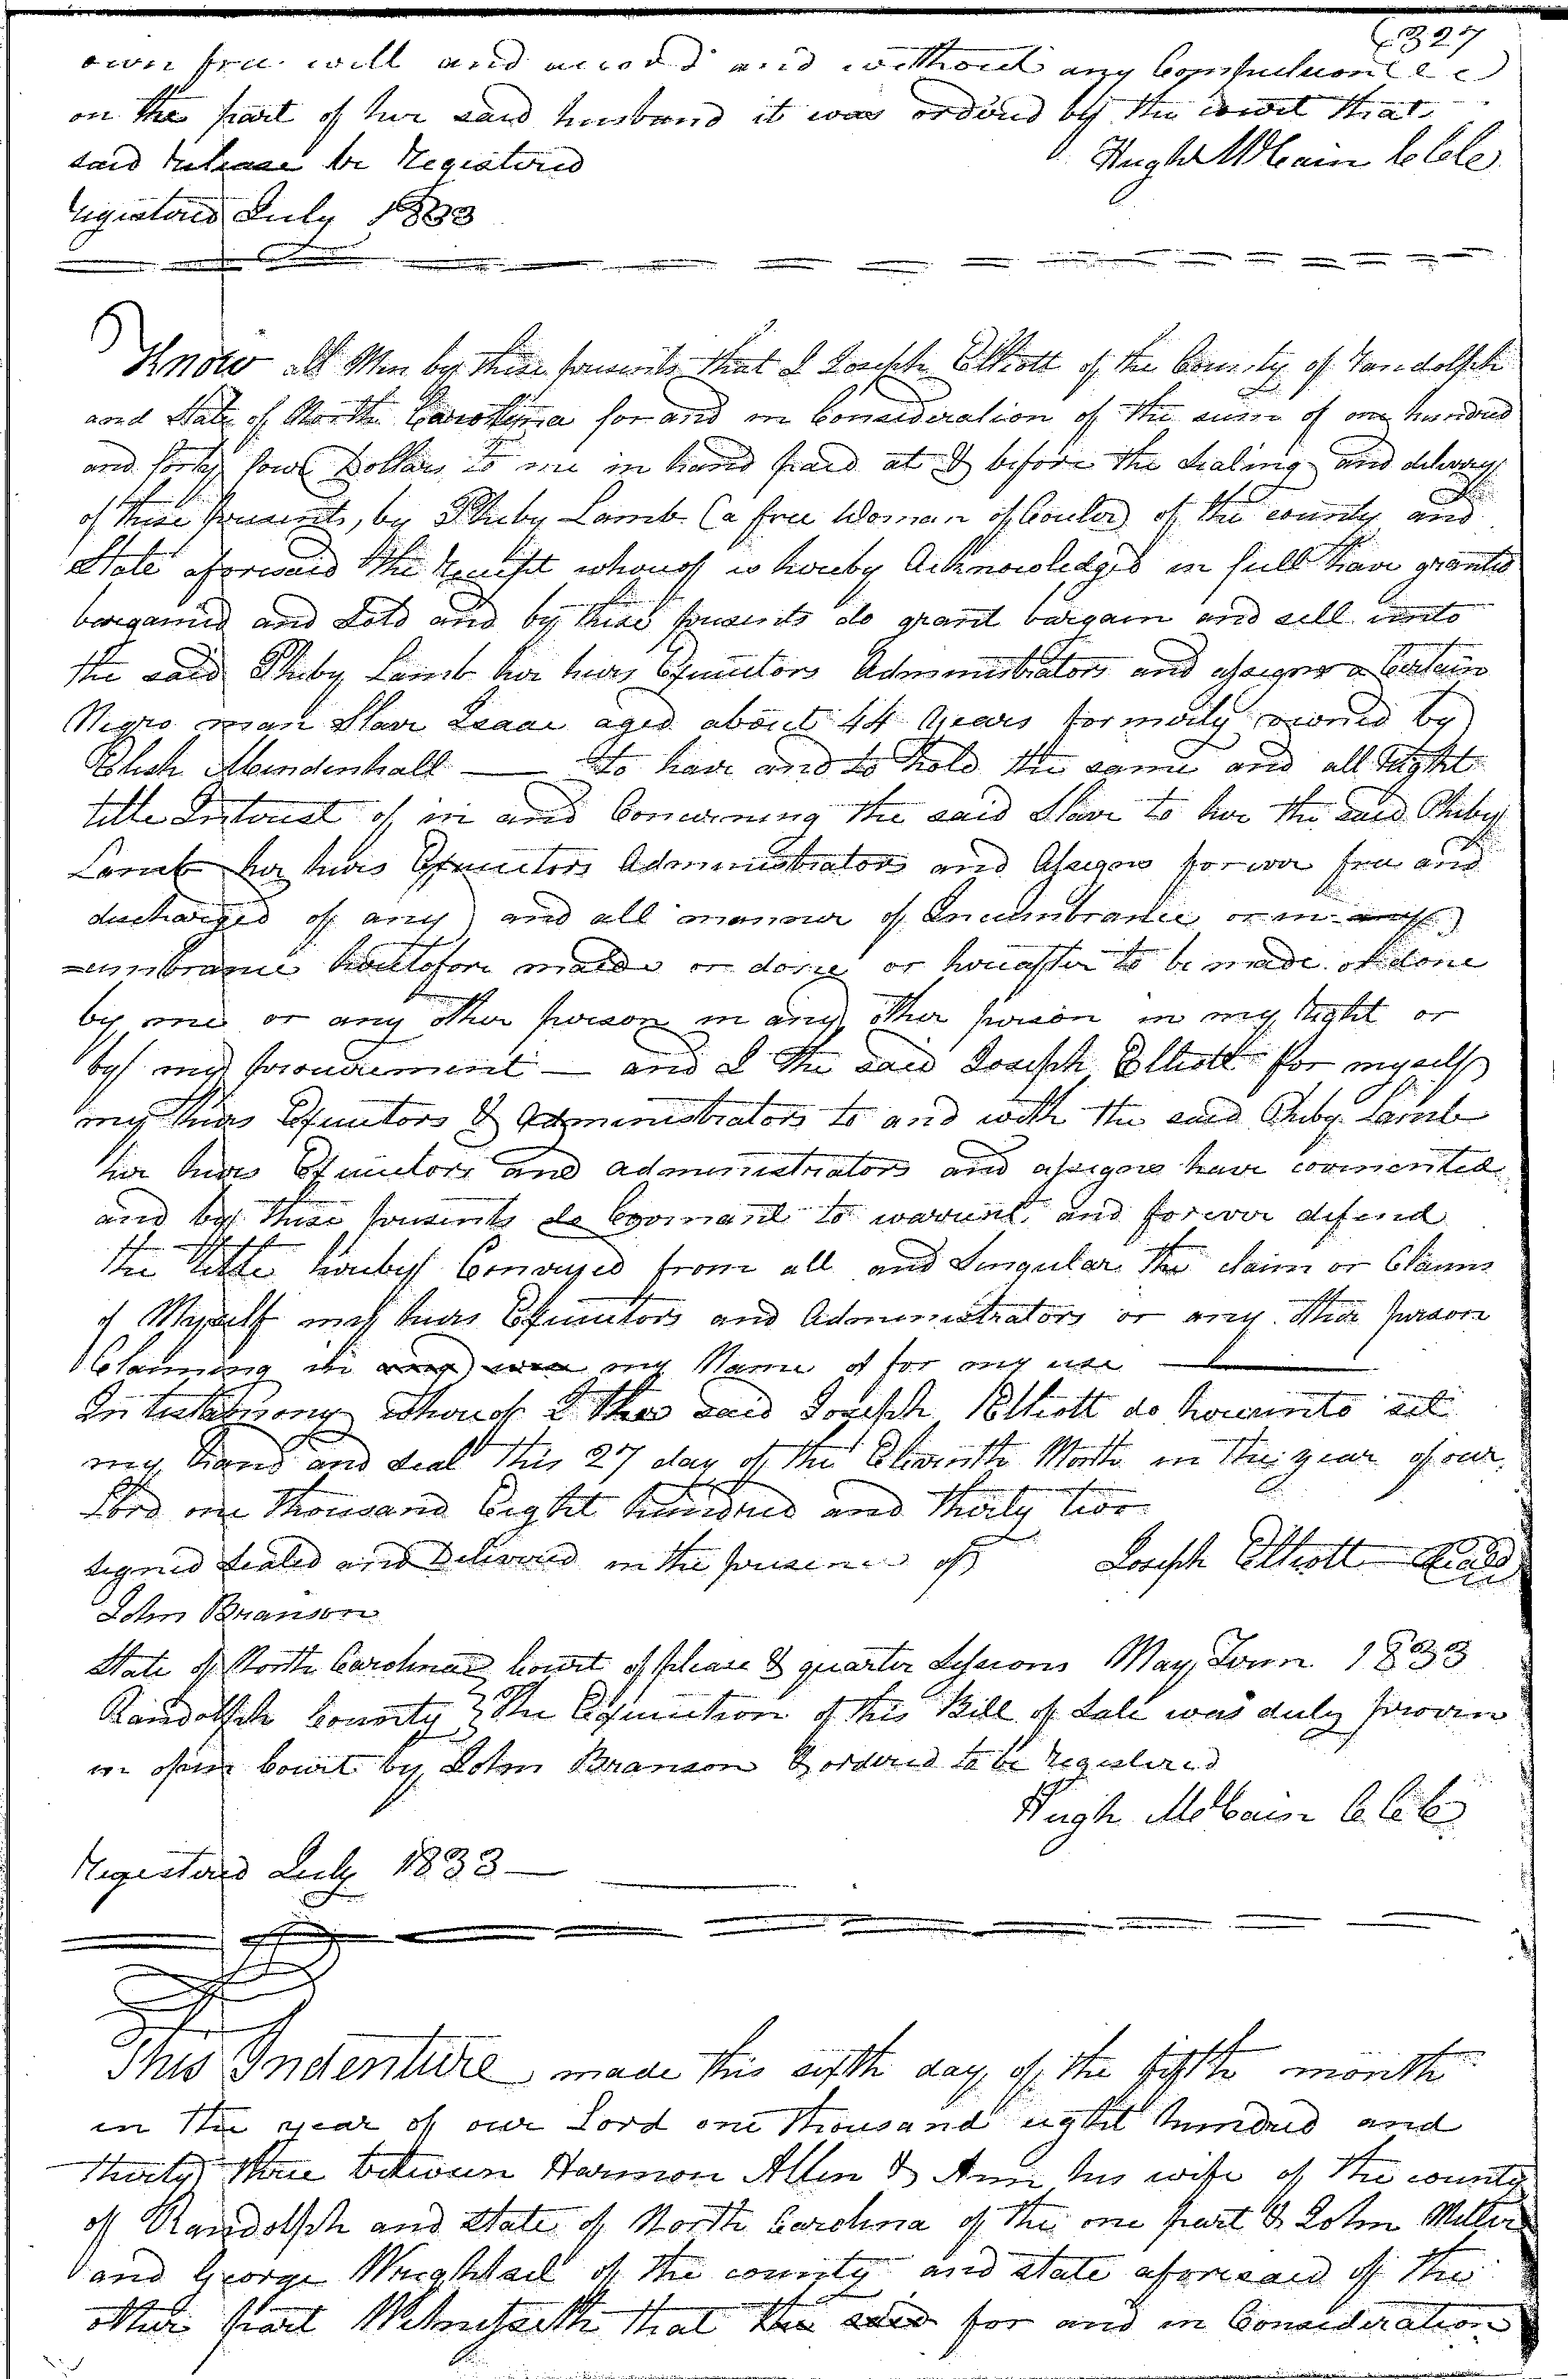 327
own free will and accord and without any Compulsion &c
on the part of her said husband it was ordered by the court that
said release be Registered
Hugh McCain C C C
Registered July 1833
Know all Men by these presents that I Joseph Elliott of the County of Randolph
and State of North Carolina for and in Consideration of the sum of one hundred
and forty four Dollars to me in hand paid at & before the Sealing and delivery
of these presents, by Pheby Lamb (a free Woman of Couler) of the county and
State aforesaid the Receipt whereof is hereby Acknowledged in full have granted
bargained and Sold and by these presents do grant bargain and sell unto
the said Pheby Lamb her heirs Executors Administrators and assigns a Certain
Negro man Slave Isaac aged about 44 Years formerly owned by
Elish Mendenhall — to have and to hold the same and all Right
title Interest of in and Concerning the said Slave to her the said Pheby
Lamb her heirs Executors Administrators and Assigns forever free and
discharged of any and all manner of Incumbrance or in
=cumbrance heretofore made or done or hereafter to be made or done
by me or any other person in any other person in my Right or
by my procurement — and I the said Joseph Elliott for myself
my heirs Executors & Administrators to and with the said Pheby Lamb
her heirs Executors and administrators and assigns have covenented
and by these presents do Covenant to warrant and forever defend
the title hereby Conveyed from all and Singular the claim or Claims
of Myself my heirs Executors and Administrators or any other person
Claiming in my Name or for my use
In testamony whereof I the said Joseph Elliott do hereunto set
my hand and seal this 27 day of the Eleventh Month in the year of our
Lord one Thousand Eight hundred and thirty two
signed sealed and Delivered in the presence of Joseph Elliott Seal
John Branson
State of North Carolina } Court of please & quarter Sessions May Term 1833
Randolph County } The Execution of this Bill of Sale was duly proven
in open Court by John Branson & ordered to be registered
Hugh McCain C C C
Registered July 1833
This Indenture made this sixth day of the fifth month
in the year of our Lord one thousand eight hundred and
thirty three between Harmon Allen & Ann his wife of the county
of Randolph and State of North Carolina of the one part & John Miller
and George Wrightsel of the county and state aforesaid of the
other part Witnesseth that the said for and in Consideration